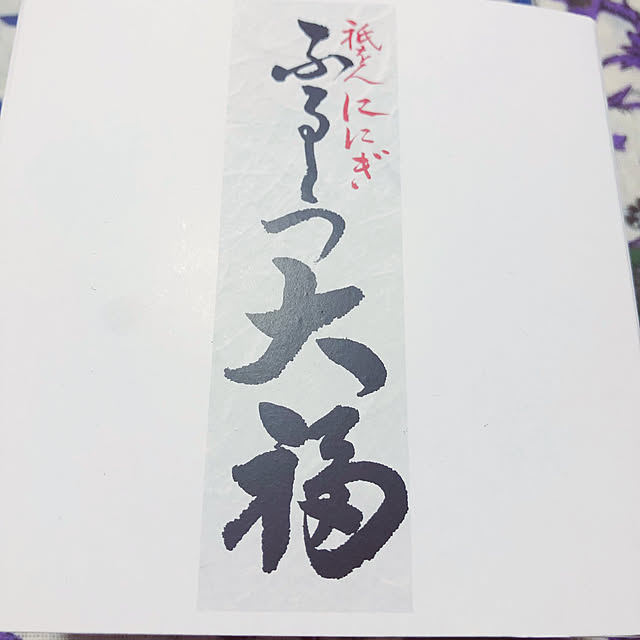 祇をんににぎ
ふるーつ大福